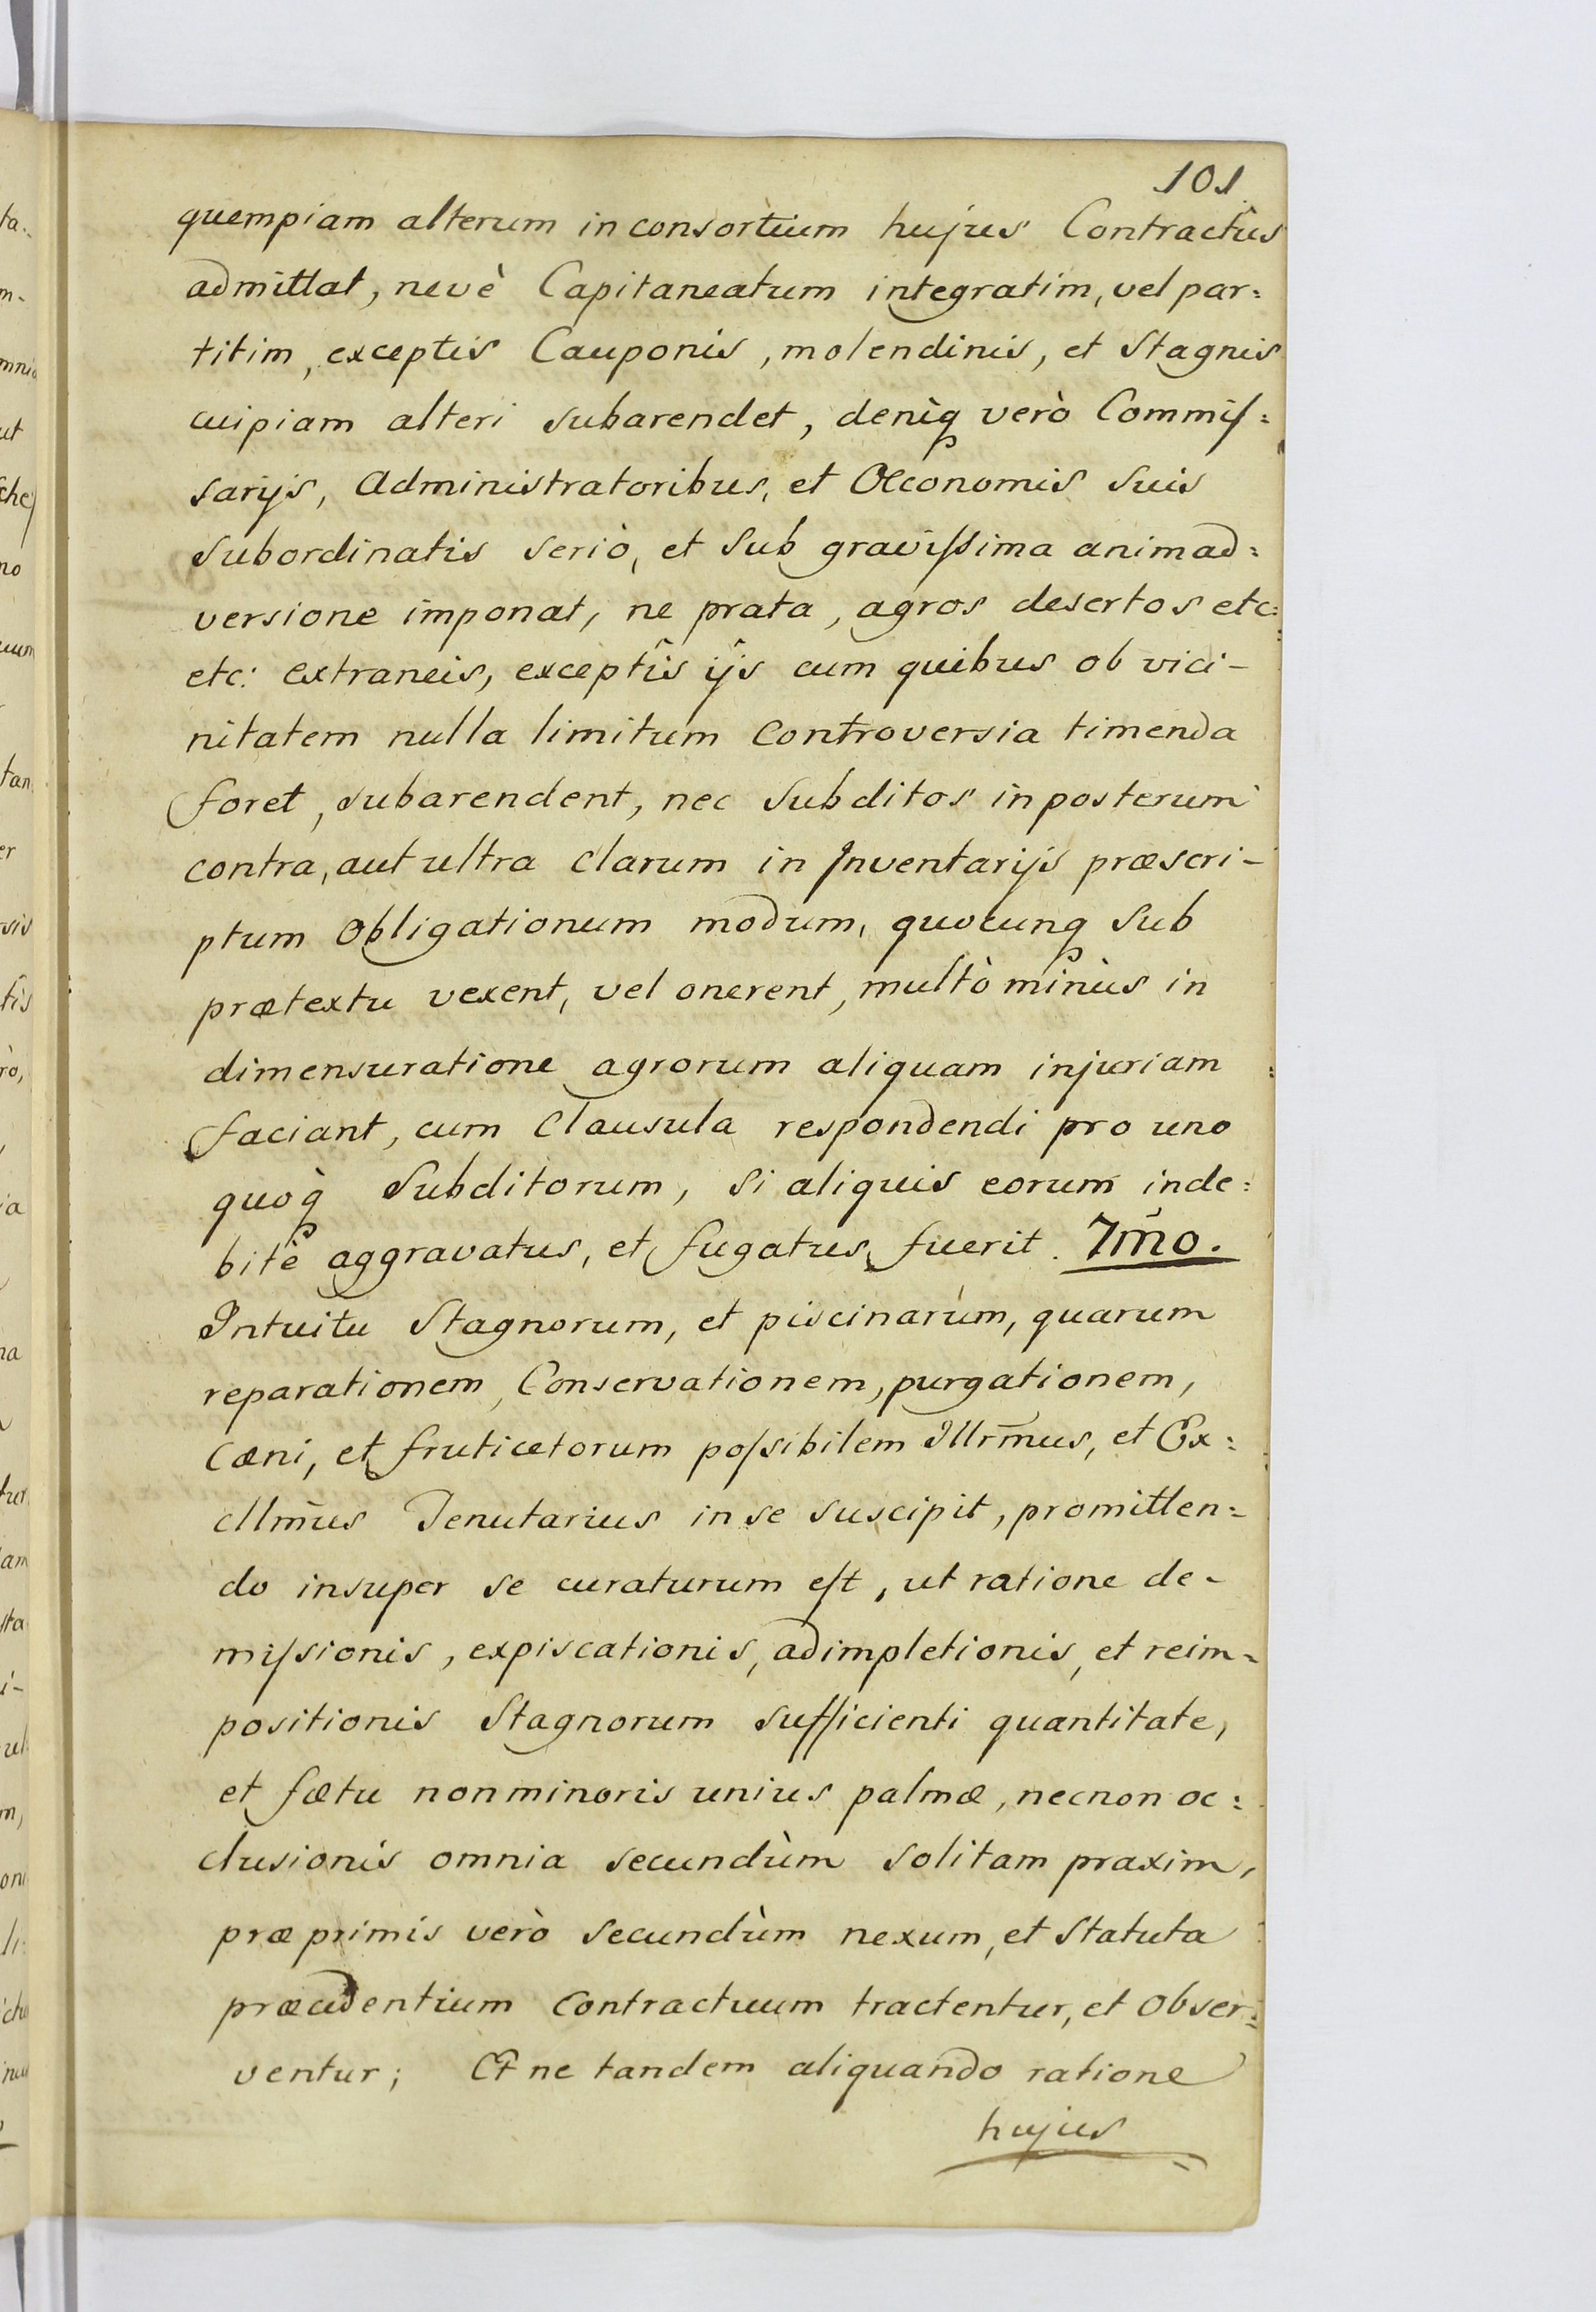 101
quempiam alterum in consortium hujus Contractûs
admittat, nevè Capitaneatum integratim, vel par:
titim, exceptis Cauponis, molendinis, et Stagnis
cuipiam alteri subarendet, deniq vero Commiſ:
sarijs, Administratoribus, et Œconomis suis
subordinatis seriò, et sub graviſsima animad:
versione imponat, ne prata, agros desertos etc:
etc: extraneis, exceptîs ijs cum quibus ob vici-
nitatem nulla limitum controversia timenda
foret, subarendent, nec subditos in posterum
contra, aut ultra clarum in Inventarijs præscri-
ptum obligationum modum, quocunq sub
prætextu vexent, vel onerent, multò minùs in
dimensuratione agrorum aliquam injuriam
faciant, cum clausula respondendi pro uno
quoq Subditorum, si aliquis eorum inde:
bitè aggravatus, et fugatus fuerit. 7m̃o.
Intuitu Stagnorum, et piscinarum, quarum
reparationem, Conservationem, purgationem,
cæni, et fruticetorum poſsibilem Illrm̃us, et Ex:
cllm̃us Tenutarius in se suscipit, promitten:
do insuper se curaturum eſt, ut ratione de-
miſsionis, expiscationis, adimpletionis, et reim-
positionis Stagnorum sufficienti quantitate,
et fœtu non minoris unius palmæ, necnon oc:
clusionis omnia secundùm solitam praxim,
præprimis verò secundùm nexum, et statuta
præcedentium contractuum tractentur, et obser:
ventur; Et ne tandem aliquando ratione
hujus